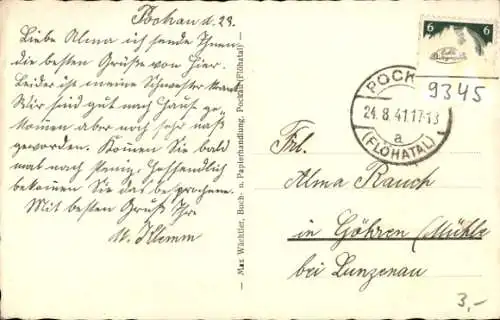 Pockau d. 23.
Liebe Alma ich sende Ihnen
die besten Grüße von hier.
Leider ist meine Schwester krank
Wir sind gut nach Haus ge-
kommen aber noch sehr naß
geworden. Kommen Sie bald
mal nach Hoffendlich
bekommen Sie das besprochene.
Mit besten Gruß Ihr
M. Klemm
Max Wächtler, Buch- u. Papierhandlung, Pockau (Flöhatal)
6 6
POCK
9345
24.8.41.17-18
a
(FLÖHATAL)
Frl.
Alma Rauch
in Göhren (Mühle
bei Lunzenau
3,-